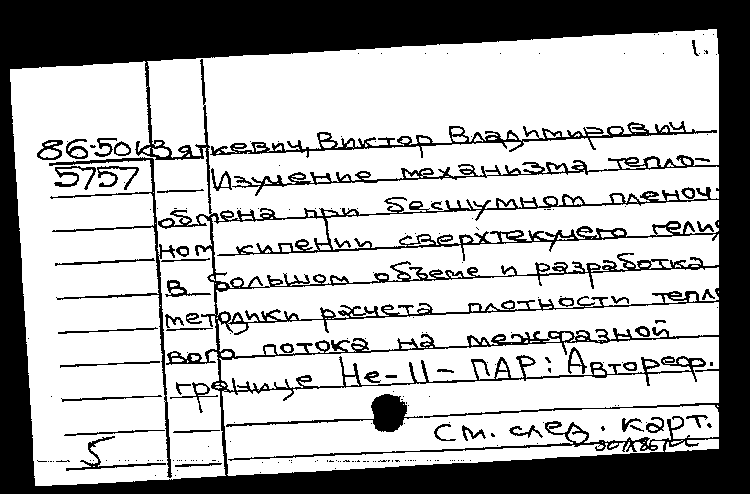 1.
86-50к Вяткевич, Виктор Владимирович.
5757 Изучение механизма тепло-
обмена при бесшумном пленоч-
ном кипении сверхтекучего гелия
в большом объеме и разработка
методики расчета плотности тепло
вого потока на межфазной
границе Не-II-ПАР: Автореф.
См. след. карт.
5